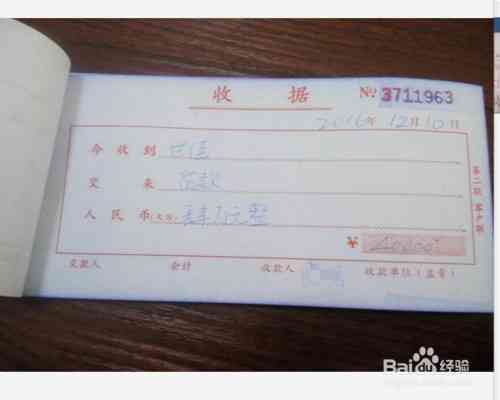 收据 No 3711963
2016年12月10日
今收到
交来 货款
人民币(大写) 万元整
¥ 40000
交款人 会计 收款人 收款单位(盖章)
第二联 客户联
Bai du 经验